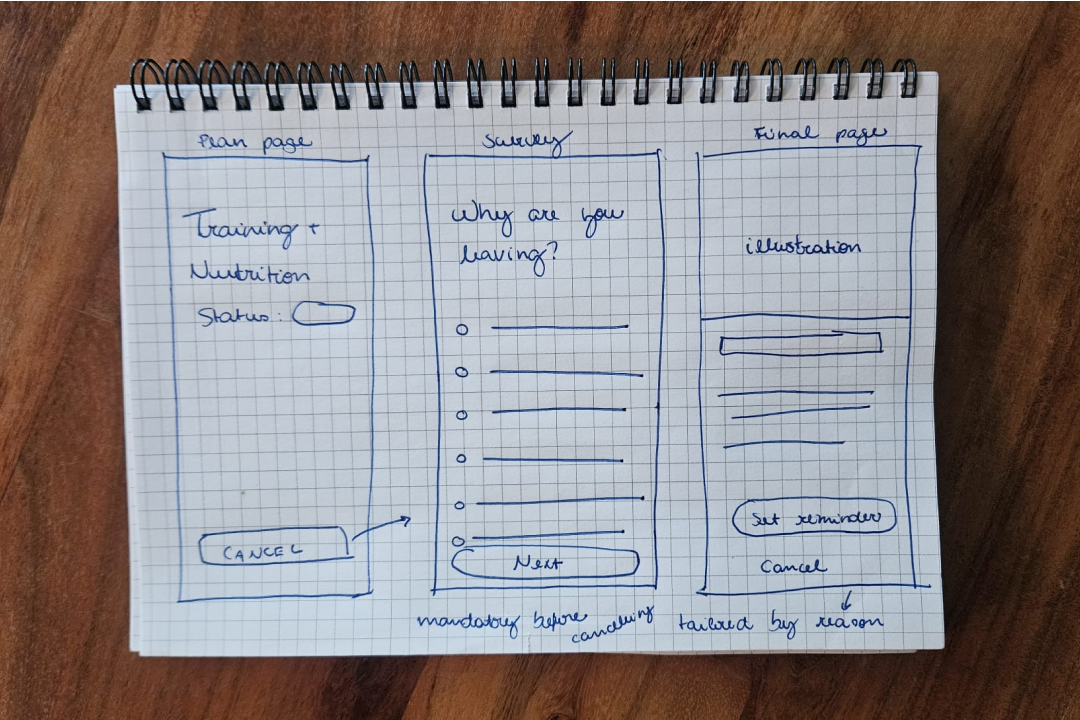 Plan page
Training +
Nutrition
Status:
CANCEL
Survey
Why are you
leaving?
Next
mandatory before
cancelling
Final page
illustration
Set reminder
Cancel
tailored by reason